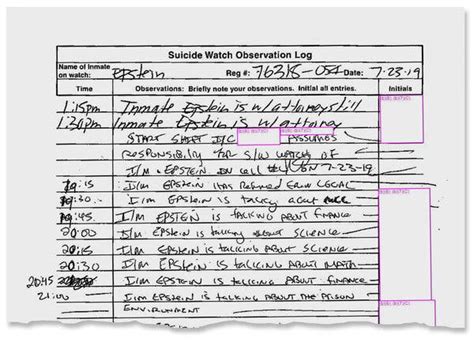 Suicide Watch Observation Log
Name of Inmate on watch: EPStein Reg #: 76318-054 Date: 7-23-19
Time Observations: Briefly note your observations. Initial all entries. Initials
1:15pm Inmate Epstein is w/attorney still
1:30pm Inmate Epstein is w/attorney
START SHIFT I/C ASSUMES
RESPONSIBILITY FOR S/W WATCH OF
I/M EPSTEIN IN CELL ON 7-23-19
19:15 I/M EPSTEIN HAS RETURNED FROM LEGAL
19:30 I/M EPSTEIN IS talking about
19:45 I/M EPSTEIN IS TALKING ABOUT FINANCE
20:00 I/M EPSTEIN IS talking about SCIENCE
20:15 I/M EPSTEIN IS TALKING ABOUT SCIENCE
20:30 I/M EPSTEIN IS TALKING ABOUT MATH
20:45 I/M EPSTEIN IS TALKING ABOUT FINANCE
21:00 I/M EPSTEIN IS TALKING ABOUT THE PRISON
ENVIRONMENT